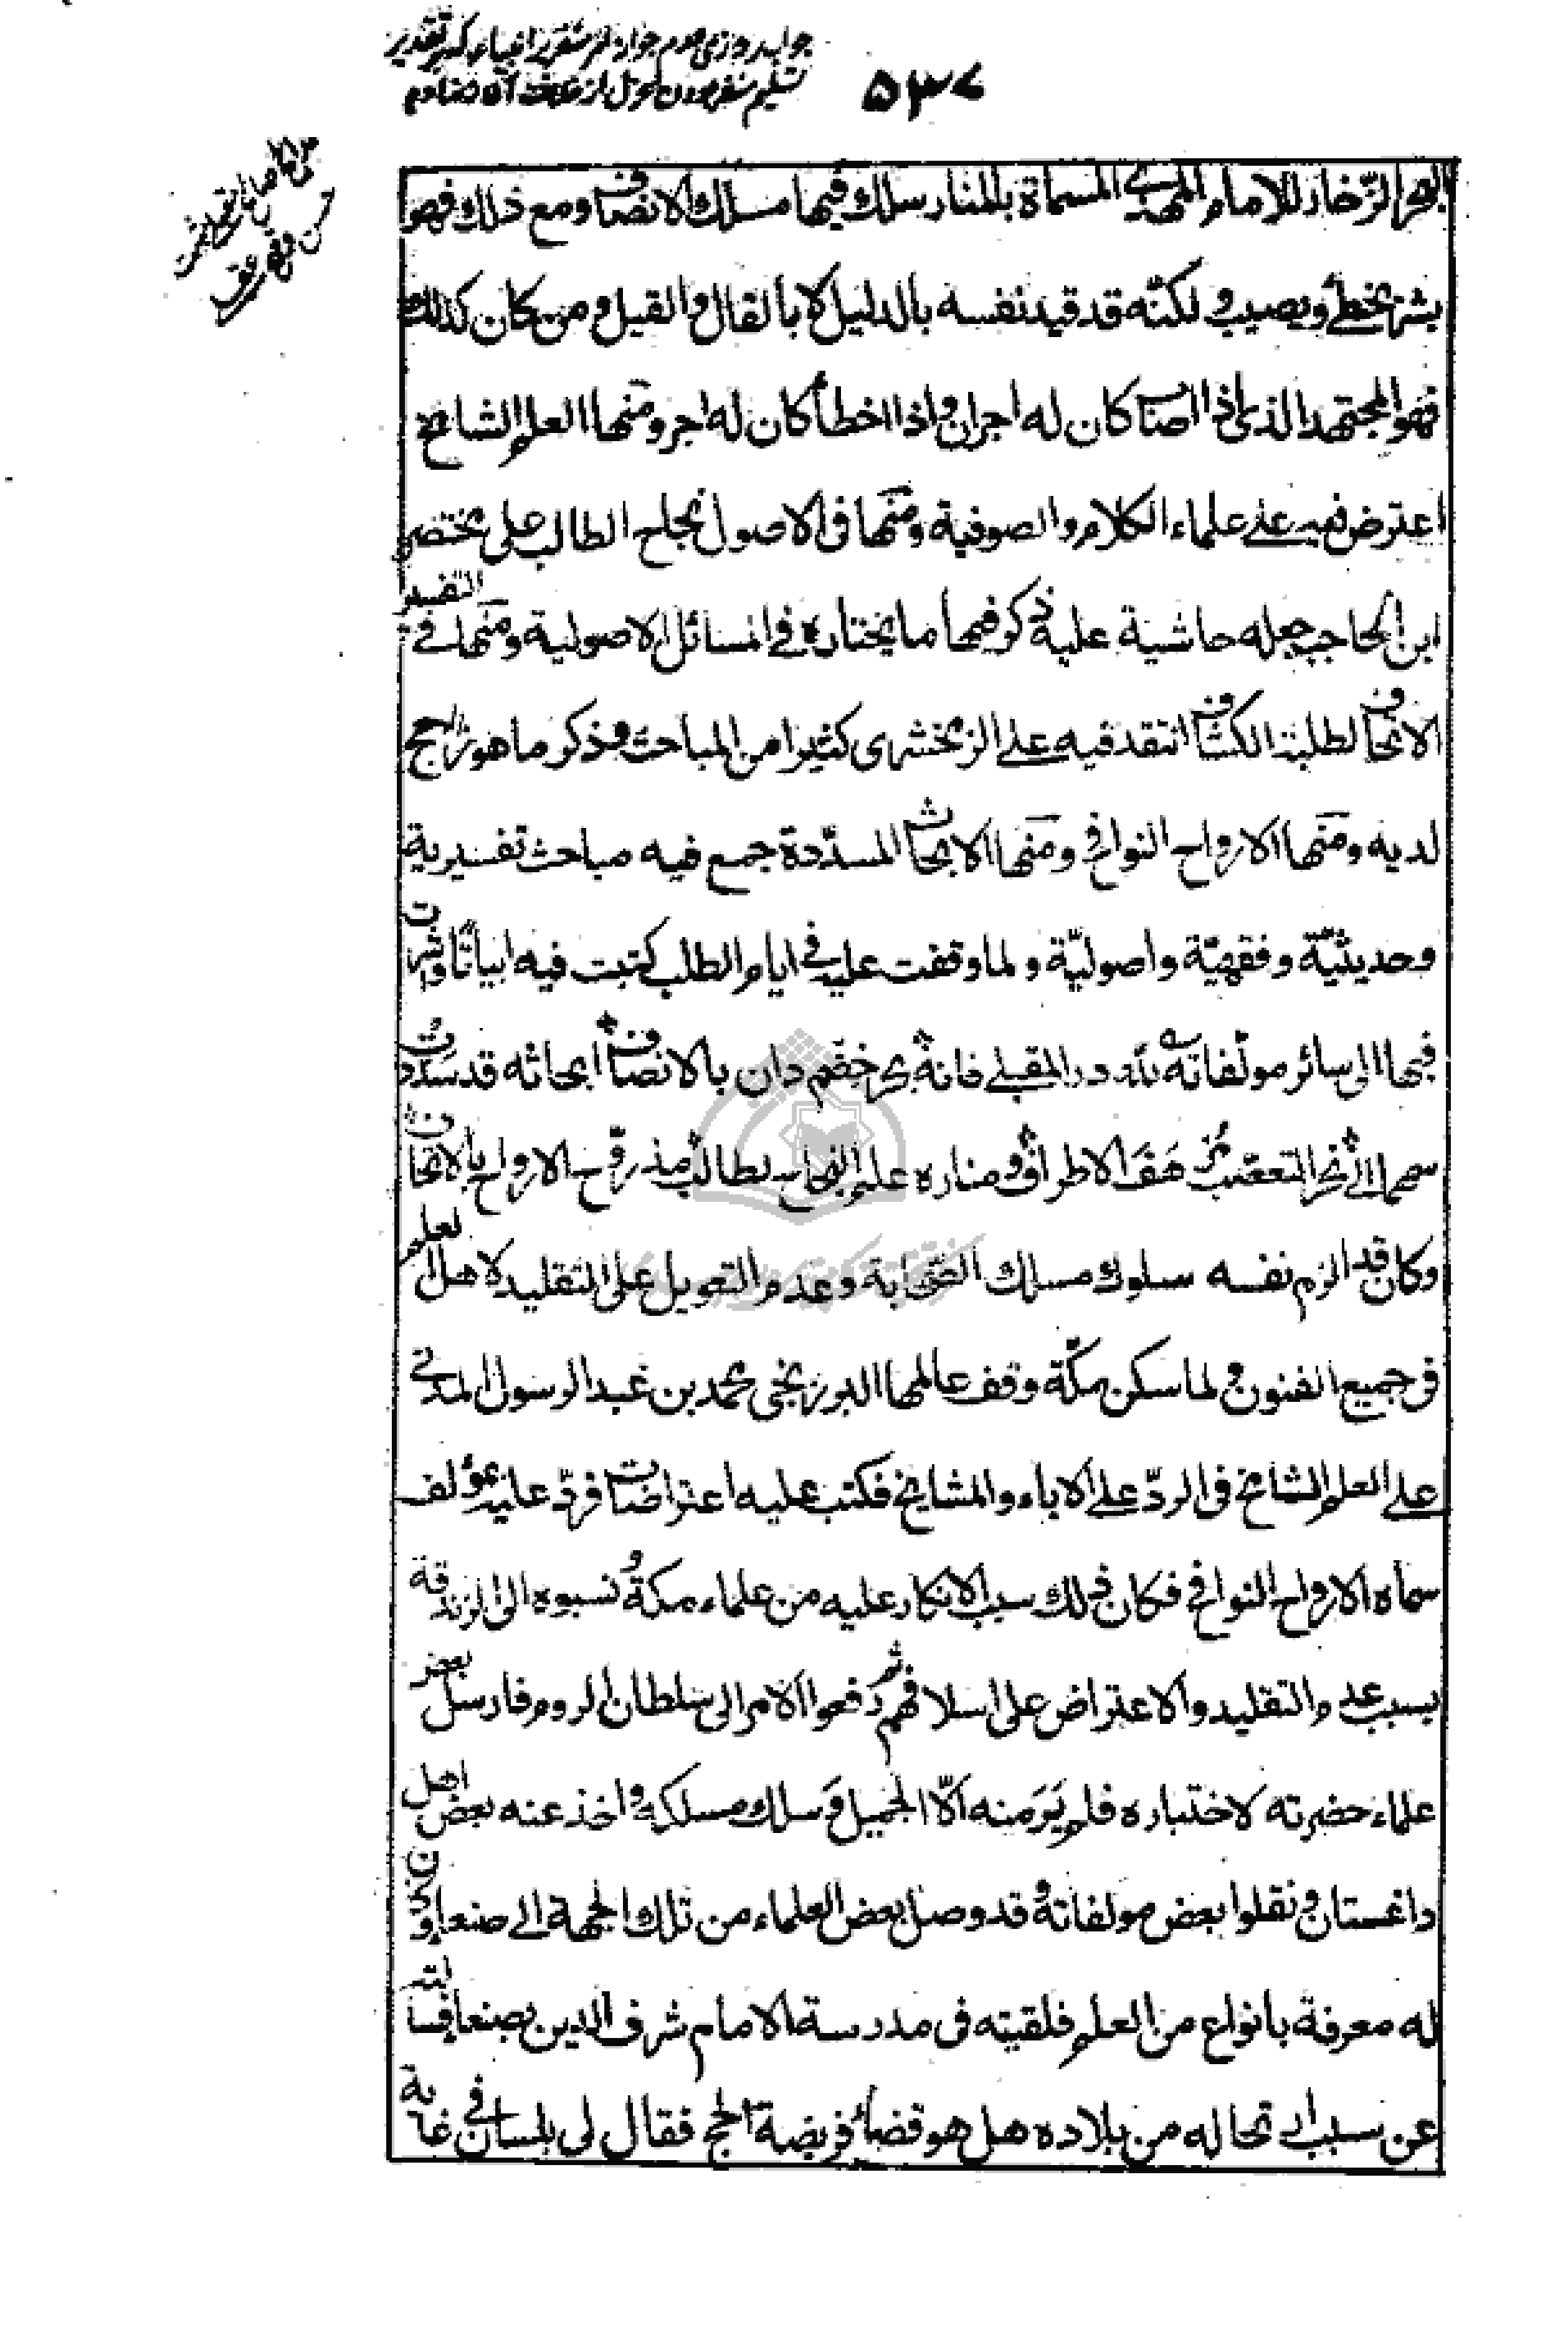 ۵۳۷
البحر الزّخار للامام المهدي المسماة بالمنار سلك فيها مسلك الانصاف ومع ذلك فهو
بشر يخطئ ويصيب ولكنّه قد قيد نفسه بالدليل لا بالقال والقيل ومن كان كذلك
فهو المجتهد الذي اذا اصاب كان له اجران واذا اخطأ كان له اجر ومنها العلم الشامخ
اعترض فيه على علماء الكلام والصوفية ومنها في الاصول نجاح الطالب على مختصر
ابن الحاجب جعله حاشية عليه ذكر فيها ما يختاره في المسائل الاصولية ومنها في التفسير
الاتحاف لطلبة الكشاف انتقد فيه على الزمخشري كثيرا من المباحث وذكر ما هو راجح
لديه ومنها الارواح النوافخ ومنها الابحاث المسدّدة جمع فيه مباحث تفسيرية
وحديثيّة وفقهيّة واصوليّة ولما وقفت عليه في ايام الطلب كتبت فيه ابياتًا واشرت
فيها الى سائر مولّفاته لله در المقبلي فانه بحر خضم دان بالانصاف ابحاثه قد سدّدت
سهما الى نحر التعصّب مرهف الاطراف ومناره علم النجاح لطالب مذ روّح الارواح بالاتحاف
وكان قد الزم نفسه سلوك مسلك الصحابة وعدم التعويل على التقليد لاهل العلم
في جميع الفنون ولما سكن مكّة وقف عالمها البرزنجي محمد بن عبد الرسول المدني
على العلم الشامخ في الردّ على الاباء والمشايخ فكتب عليه اعتراضات فردّ عليه بمؤلف
سماه الارواح النوافخ فكان ذلك سبب الانكار عليه من علماء مكة ونسبوه الى الزندقة
بسبب عدم التقليد والاعتراض على اسلافهم ثم رفعوا الامر الى سلطان الروم فارسل بعض
علماء حضرته لاختباره فلم يَرَ منه الّا الجميل وسلك مسلكه واخذ عنه بعض اهل
داغستان ونقلوا بعض مولفاته وقد وصل بعض العلماء من تلك الجهة الى صنعا وكان
له معرفة بانواع من العلم فلقيته في مدرسة الامام شرف الدين بصنعا فسألته
عن سبب ارتحاله من بلاده هل هو قضاء فريضة الحج فقال لي بلسان في غاية